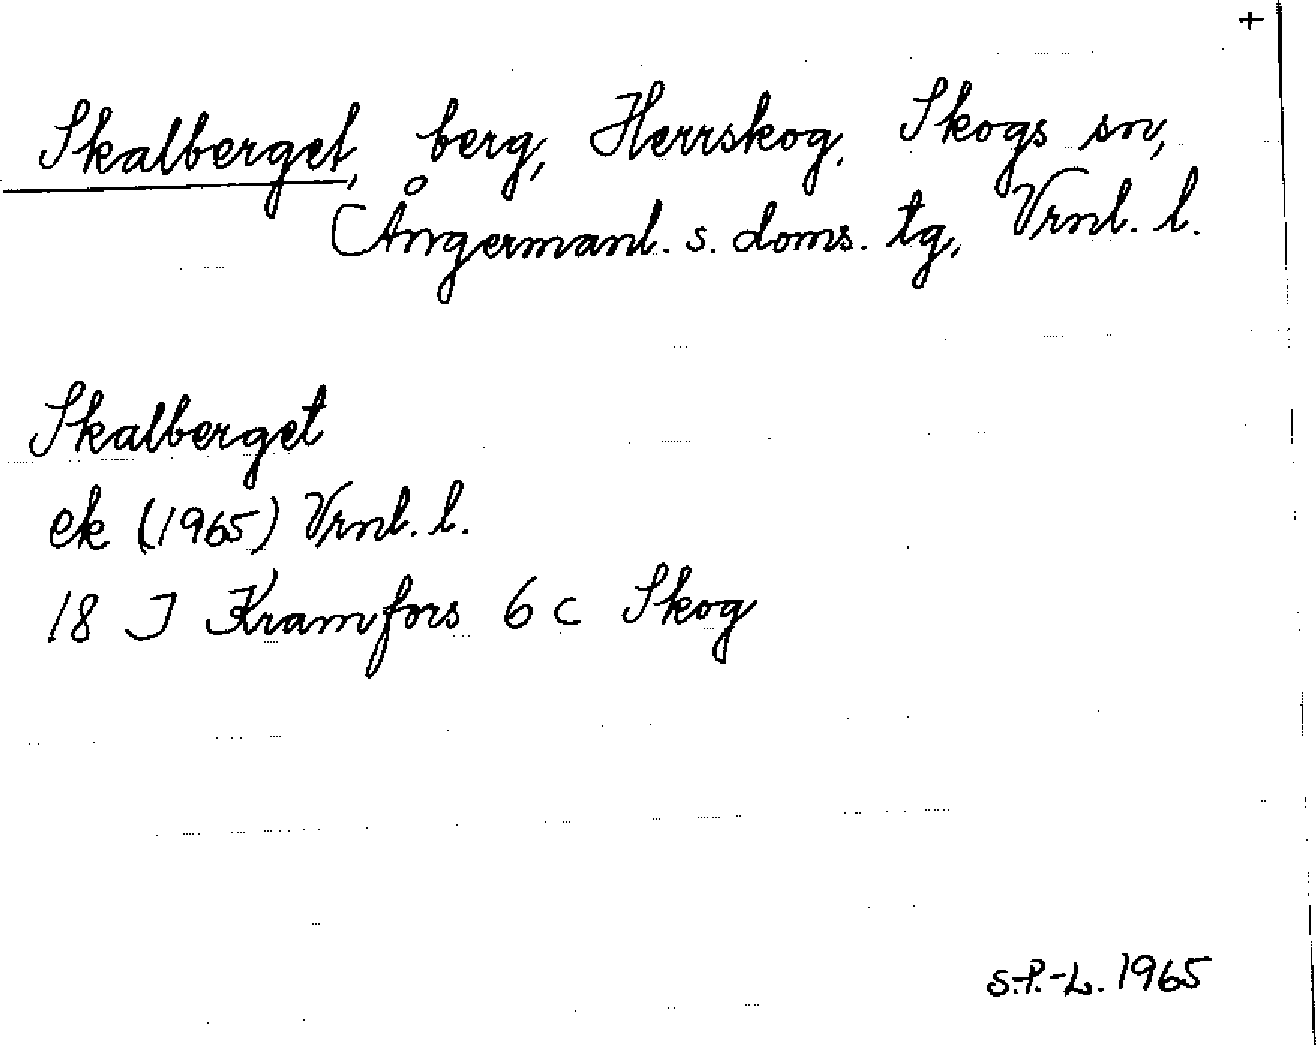 +
Skalberget, berg, Herrskog, Skogs sn,
Ångermanl. s. doms. tg, Vrnl. l.
Skalberget
ek (1965) Vrnl. l.
18 J Kramfors 6 c Skog
S.P.-L. 1965